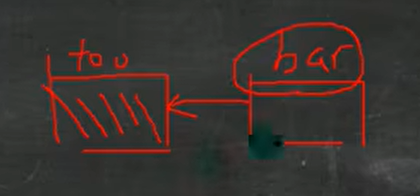 too
bar